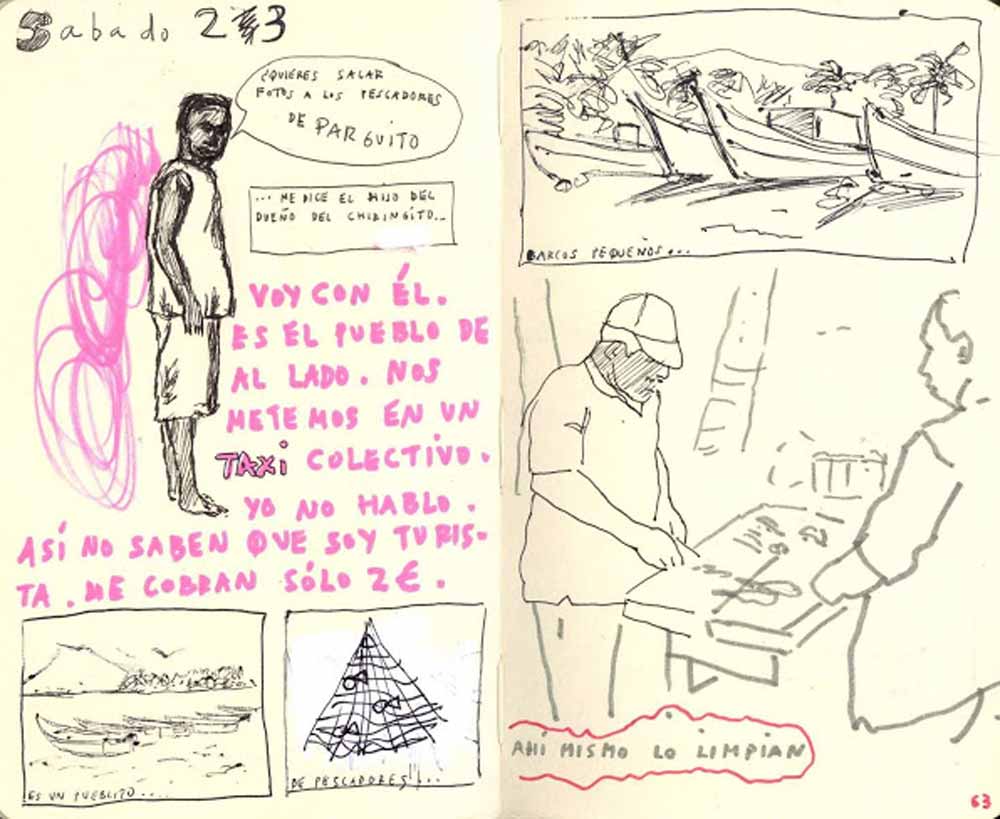 Sabado 23
¿QUIERES SALAR
FOTOS A LOS PESCADORES
DE PARGUITO
... ME DICE EL HIJO DEL
DUEÑO DEL CHIRINGITO...
VOY CON ÉL.
ES EL PUEBLO DE
AL LADO. NOS
METEMOS EN UN
TAXI COLECTIVO.
YO NO HABLO.
ASÍ NO SABEN QUE SOY TURIS-
TA. ME COBRAN SÓLO 2€.
ES UN PUEBLITO....
DE PESCADORES...
BARCOS PEQUEÑOS...
AHI MISMO LO LIMPIAN
63